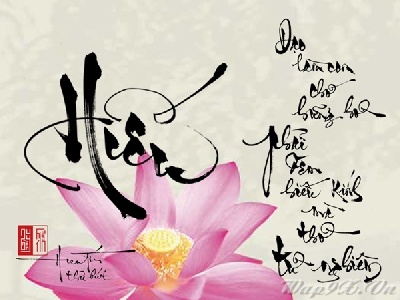 Hiếu
Đạo
làm con
chớ
hững hờ
phải
đem
hiếu kính
mà
thờ
từ nghiêm
Wap9X.Vn